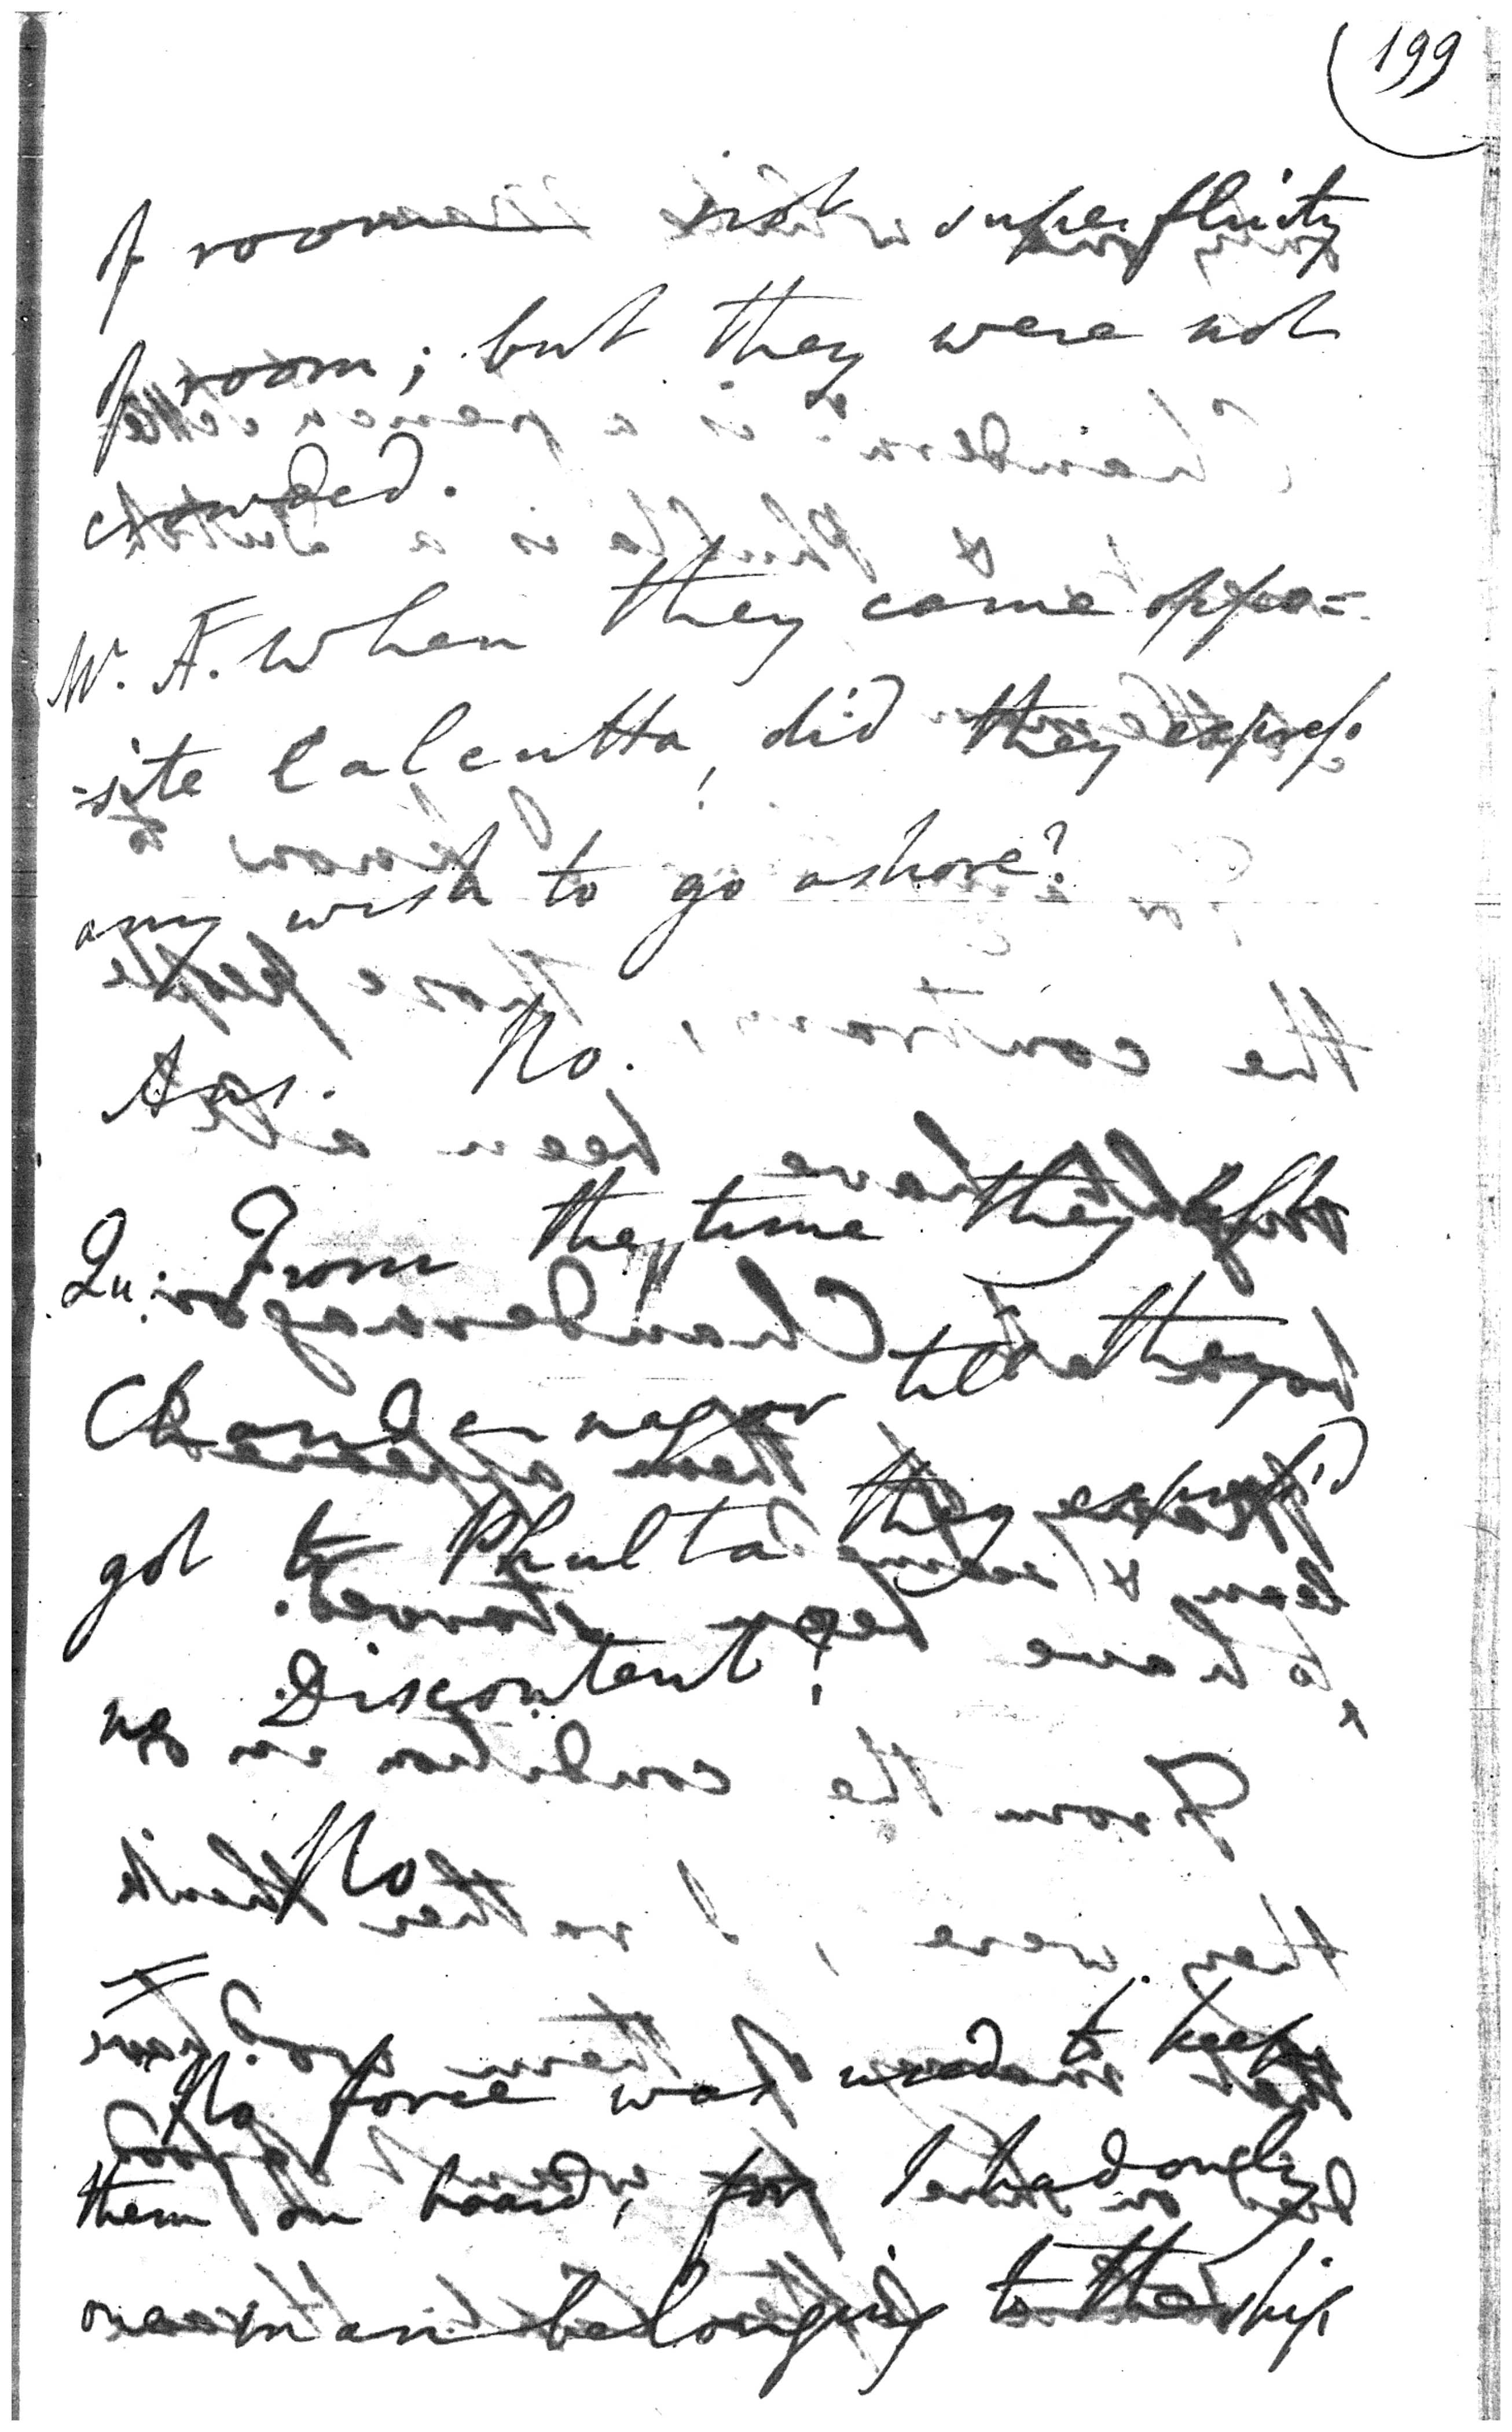 199
of room not superfluity
of room; but they were not
crowded.
W. A. When they came oppo=
-site Calcutta, did they express
any wish to go ashore?
Ans. No.
Qu: From the time they left
Chandernagor till they
got to Phulta they express'd
no Discontent?
No
No force was used to keep
them on board, for I had only
one man belonging to the ship